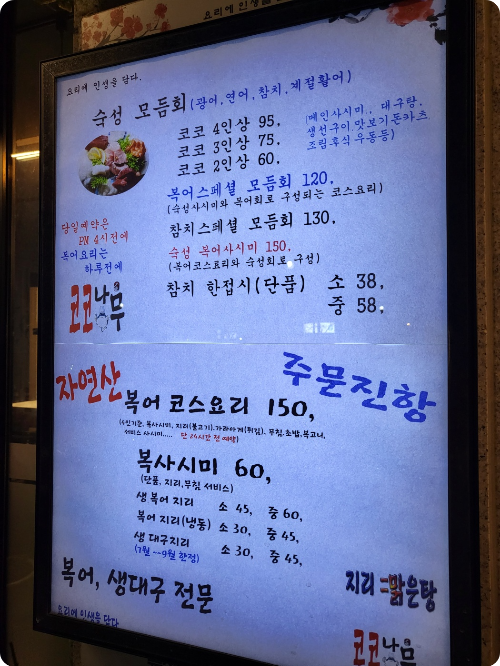 요리에 인생을
요리에 인생을 담다.
숙성 모듬회(광어,연어,참치,계절활어)
코코 4인상 95,
코코 3인상 75,
코코 2인상 60,
(메인사시미,, 대구탕.
생선구이.맛보기돈카츠
조림후식우동등)
복어스페셜 모듬회 120.
(숙성사시미와 복어회로 구성되는 코스요리)
참치스페셜 모듬회 130.
당일예약은
PM 4시전에
복어요리는
하루전에
숙성 복어사시미 150.
(복어코스요리와 숙성회로 구성)
참치 한접시(단품) 소 38,
중 58,
코코나무
주문진항
자연산
복어 코스요리 150,
(4인기준, 복사시미, 지리(불고기).가라아게(튀김). 무침.초밥.복고니.
서비스 사시미..... 단 24시간 전 예약)
복사시미 60,
(단품, 지리,무침 서비스)
생 복어 지리 소 45, 중 60,
복어 지리(냉동) 소 30, 중 45,
생 대구지리 소 30, 중 45,
(7월 ~9월 한정)
복어, 생대구 전문
지리 =맑은탕
요리에 인생을 담다
코코나무